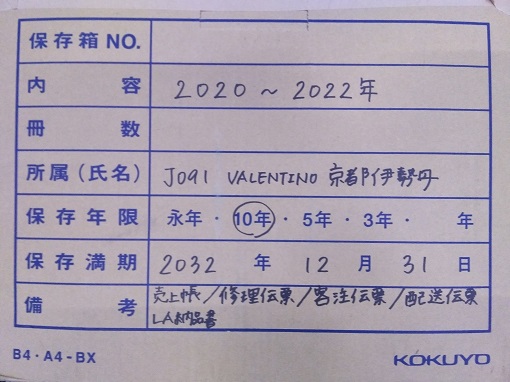 保存箱 NO.
内容 2020～2022年
冊数
所属(氏名) J091 VALENTINO 京都伊勢丹
保存年限 永年・10年・5年・3年・ 年
保存満期 2032年 12月 31日
備考 売上帳/修理伝票/客注伝票/配送伝票
LA納品書
B4・A4-BX KOKUYO